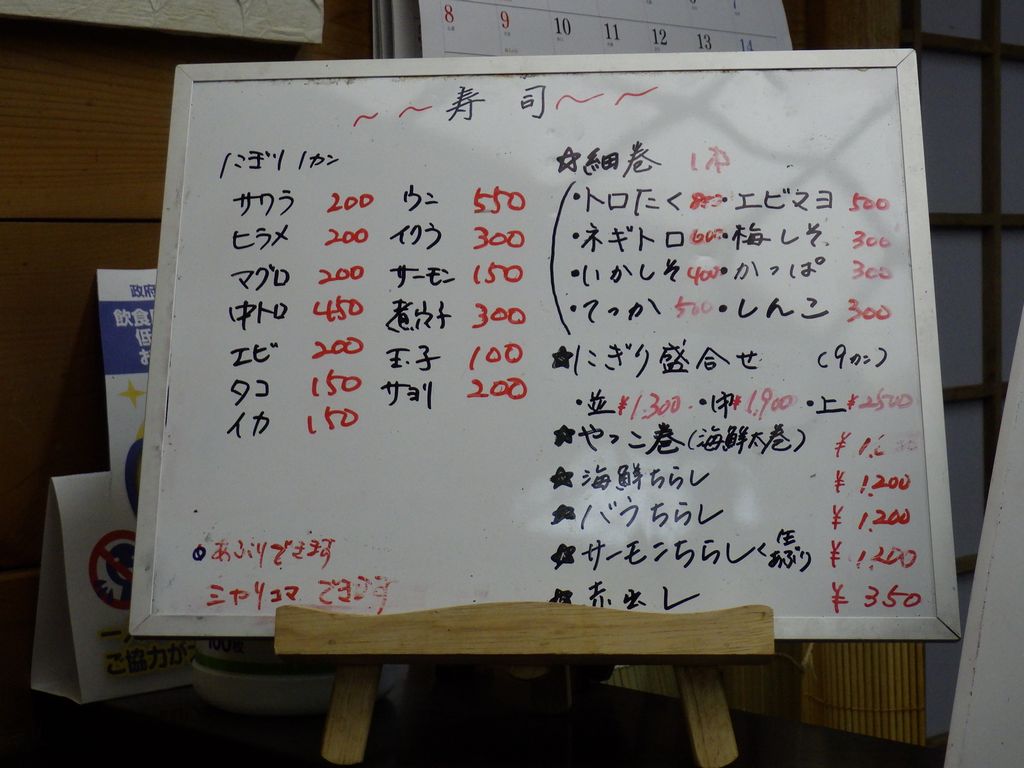 8 9 10 11 12 13 14
~~寿 司~~
にぎり 1カン
サワラ 200
ヒラメ 200
マグロ 200
中トロ 450
エビ 200
タコ 150
イカ 150
ウニ 550
イクラ 300
サーモン 150
煮穴子 300
玉子 100
サヨリ 200
あぶりできます
ミャリコマ できます
☆細巻 1本
・トロたく ・エビマヨ 500
・ネギトロ 600 ・梅しそ 300
・いかしそ 400 ・かっぱ 300
・てっか 500 ・しんこ 300
★にぎり盛合せ (9カン)
・並¥1,300 ・中¥1,900 ・上¥2500
★やっこ巻(海鮮太巻)
★海鮮ちらし ¥1,200
★バラちらし ¥1,200
★サーモンちらし<生 あぶり ¥1,200
★赤出し ¥350
政府
飲食
低
お
ご協力が
100枚